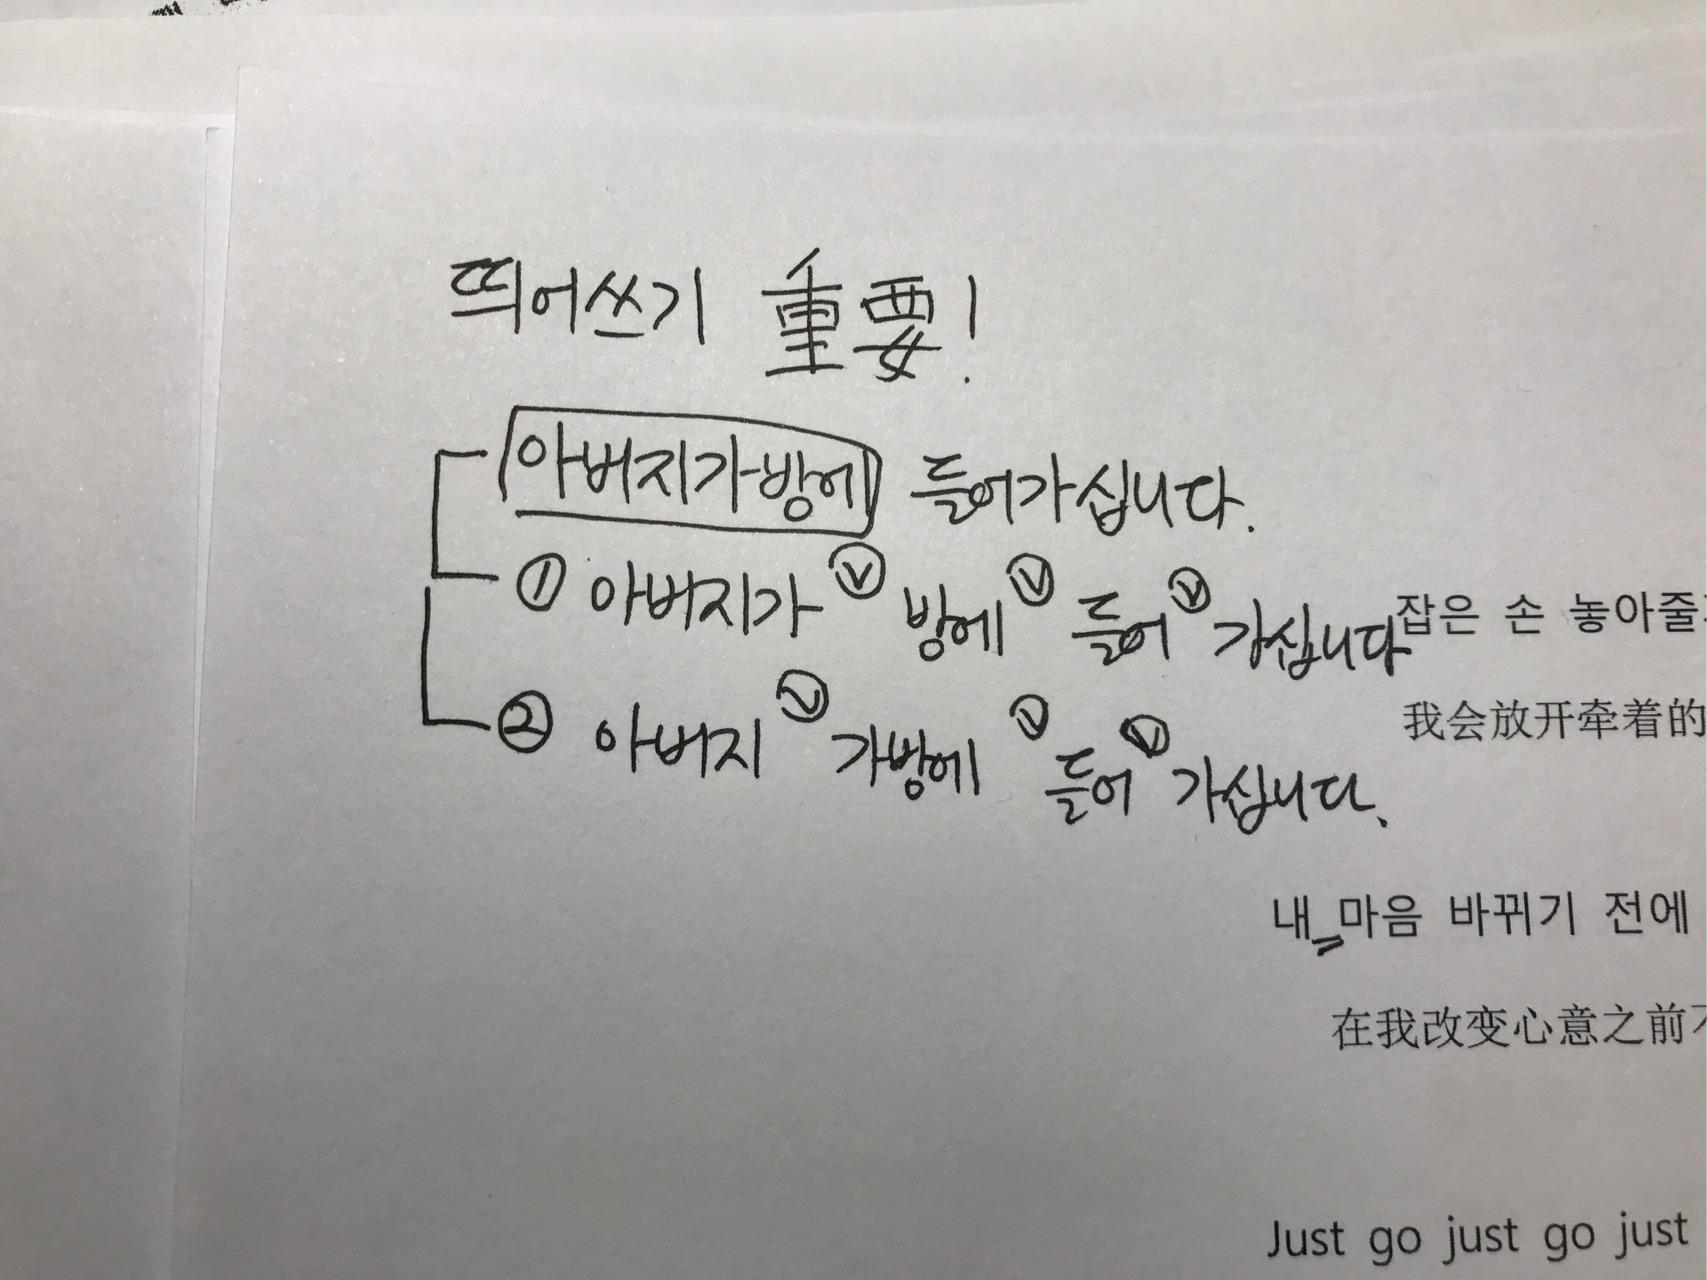 띄어쓰기 重要!
아버지가방에 들어가십니다.
① 아버지가 V 방에 V 들어 V 가십니다
② 아버지 V 가방에 V 들어 V 가십니다.
잡은 손 놓아줄
我会放开牵着的
내 마음 바뀌기 전에
在我改变心意之前
Just go just go just